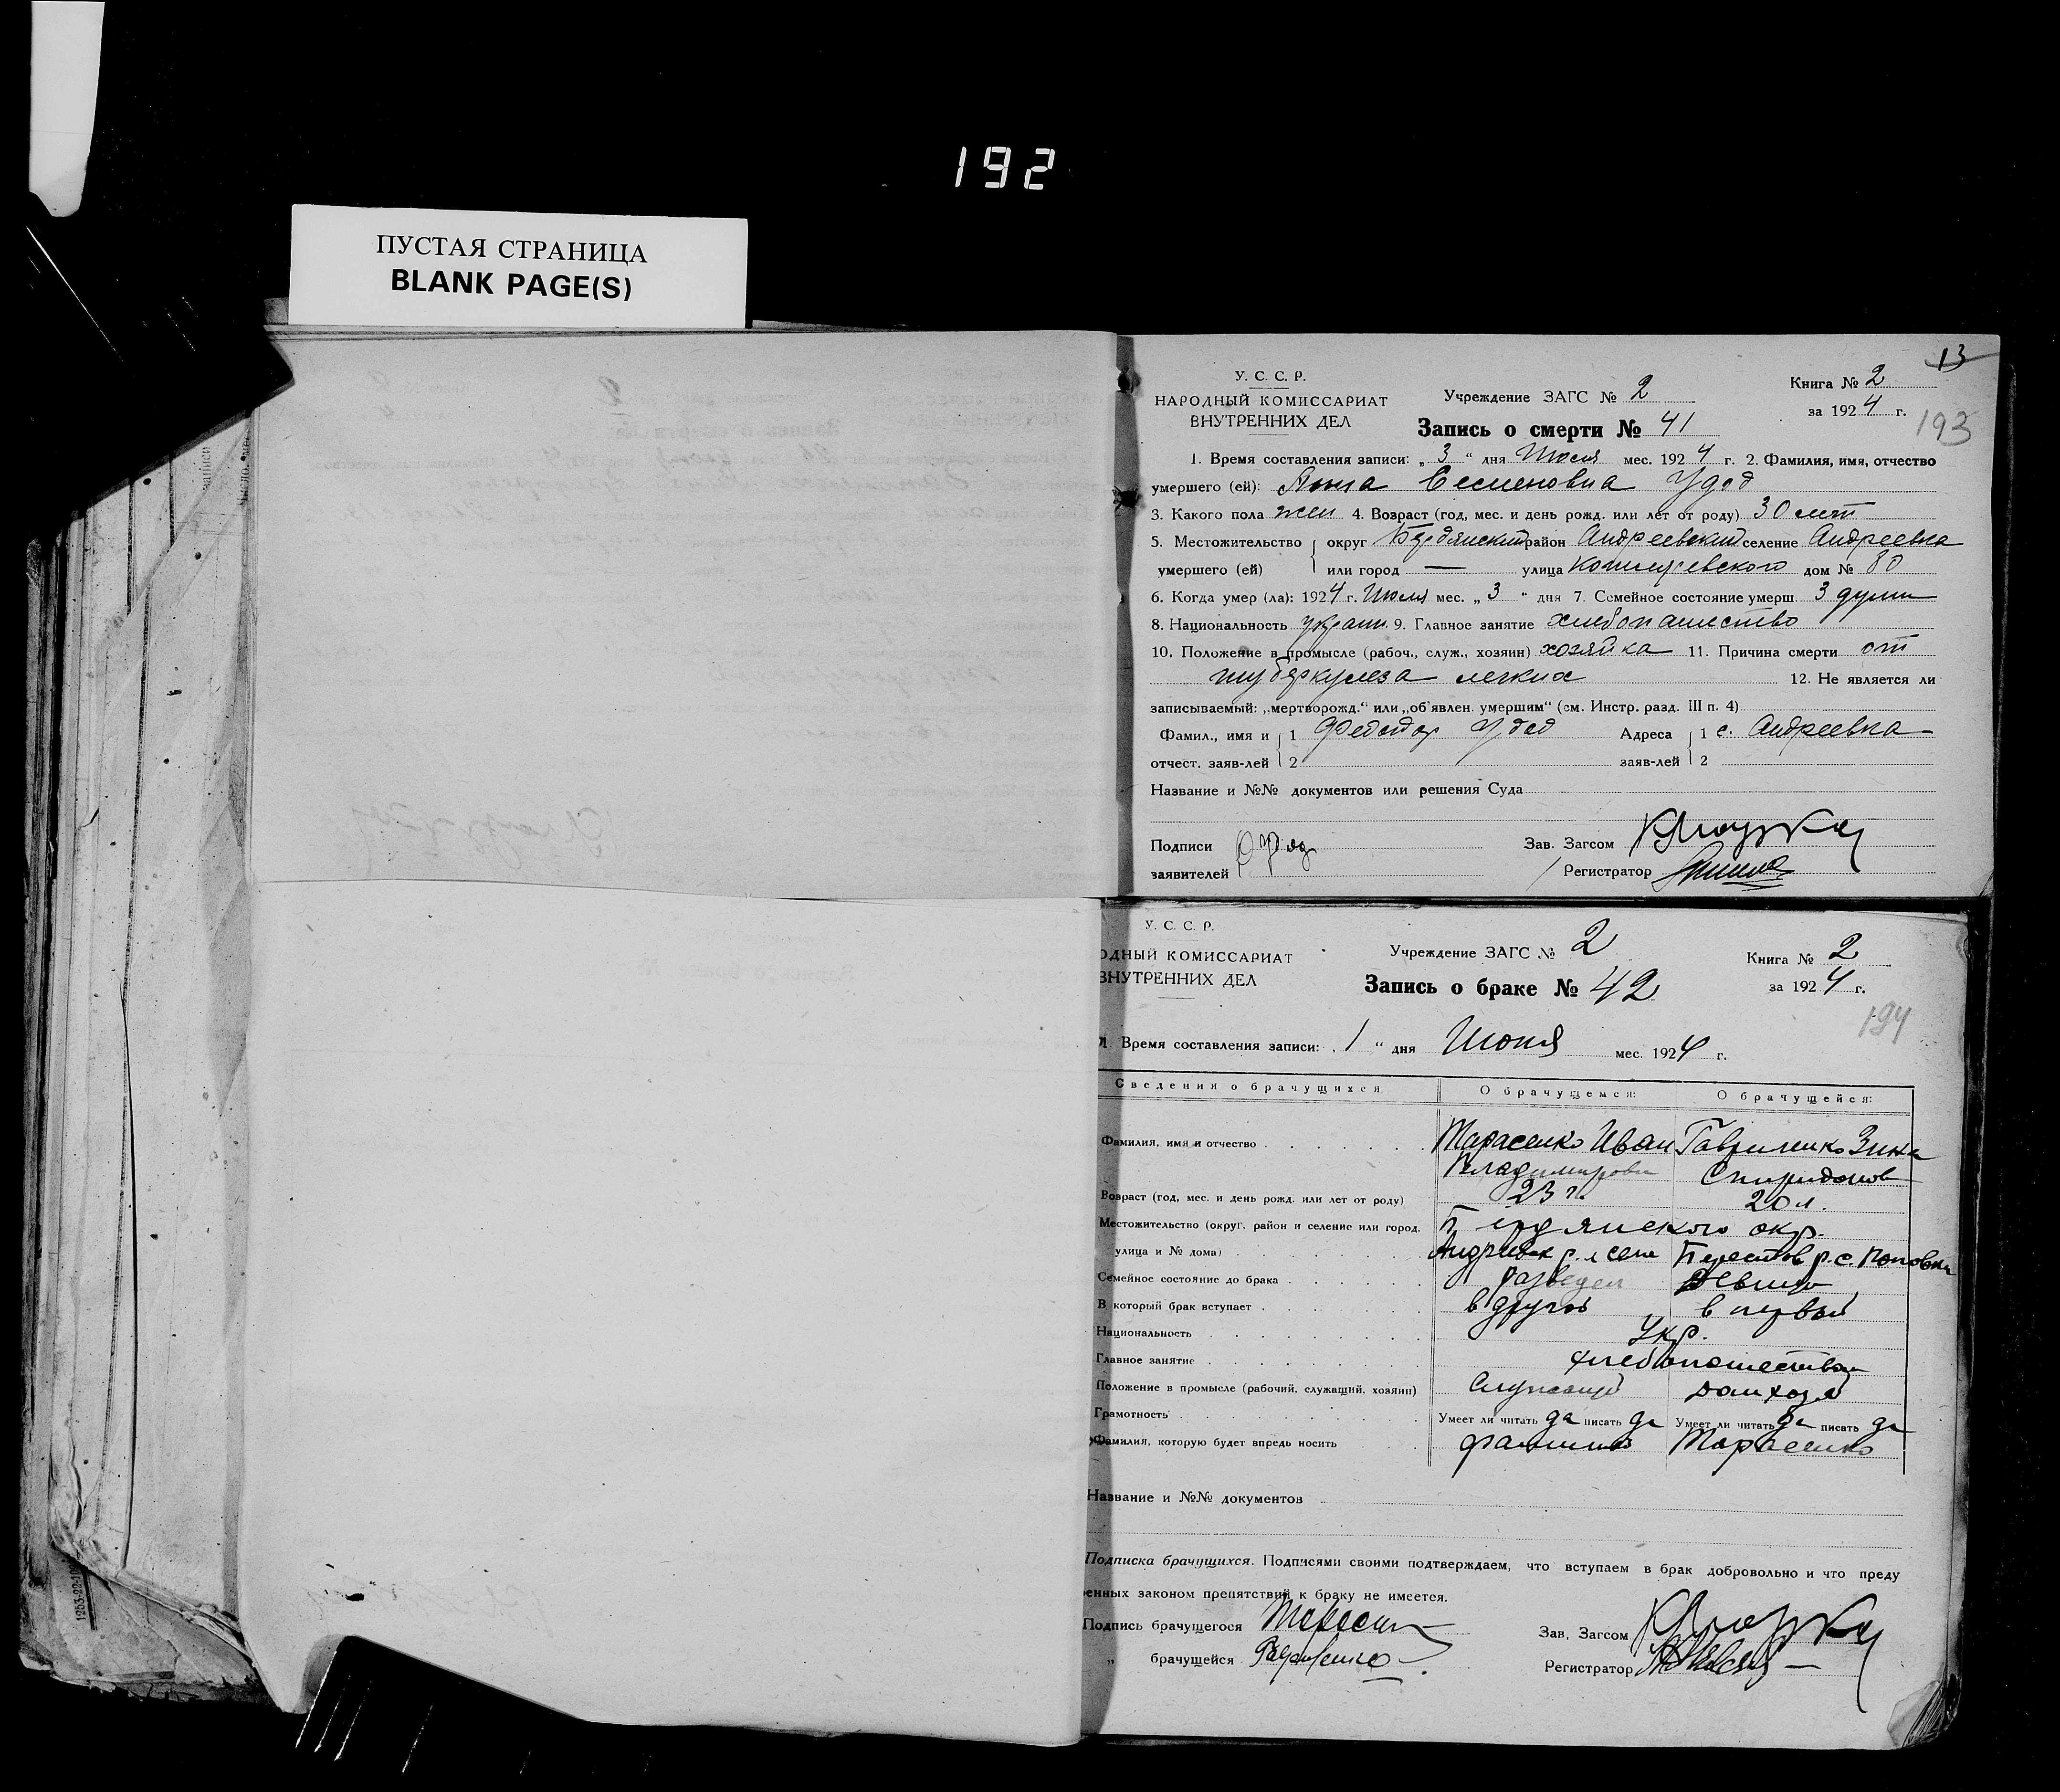 192
ПУСТАЯ СТРАНИЦА
BLANK PAGE(S)
13
У. С. С. Р.
НАРОДНЫЙ КОМИССАРИАТ
ВНУТРЕННИХ ДЕЛ
Учреждение ЗАГС № 2
Книга № 2
за 1924 г.
193
Запись о смерти № 41
1. Время составления записи: „ 3 “ дня Июля мес. 1924 г. 2. Фамилия, имя, отчество
умершего (ей): Анна Семеновна Удод
3. Какого пола жен 4. Возраст (год, мес. и день рожд. или лет от роду) 30 лет
5. Местожительство округ Бердянский район Андреевский селение Андреевка
умершего (ей) или город — улица Коцюревского дом № 80
6. Когда умер (ла): 1924 г. Июля мес. „ 3 “ дня 7. Семейное состояние умерш. 3 души
8. Национальность украин. 9. Главное занятие хлебопашество
10. Положение в промысле (рабоч., служ., хозяин) хозяйка 11. Причина смерти от
туберкулеза легких 12. Не является ли
записываемый: „мертворожд.“ или „об'явлен. умершим“ (см. Инстр. разд. III п. 4)
Фамил., имя и 1 Удод Адреса 1 с. Андреевка
отчест. заяв-лей 2 заяв-лей 2
Название и №№ документов или решения Суда
Подписи Зав. Загсом
заявителей Регистратор
У. С. С. Р.
ОДНЫЙ КОМИССАРИАТ
ВНУТРЕННИХ ДЕЛ
Учреждение ЗАГС № 2
Книга № 2
за 1924 г.
194
Запись о браке № 42
1. Время составления записи: „ 1 “ дня Июня мес. 1924 г.
Сведения о брачущихся О брачущемся: О брачущейся:
Фамилия, имя и отчество Тарасенко Иван Гавриленко Зина
Владимирович Спиридонов
Возраст (год, мес. и день рожд. или лет от роду) 23 г. 20 л.
Местожительство (округ, район и селение или город, Бердянского окр.
улица и № дома) р. с. Поповки
Семейное состояние до брака разведен девица
В который брак вступает в другой в первый
Национальность Укр.
Главное занятие хлебопашество
Положение в промысле (рабочий, служащий, хозяин) Служащий домхоз
Грамотность Умеет ли читать да писать да Умеет ли читать да писать да
Фамилия, которую будет впредь носить Тарасенко
Название и №№ документов
Подписка брачущихся. Подписями своими подтверждаем, что вступаем в брак добровольно и что преду
енных законом препятствий к браку не имеется.
Подпись брачущегося Зав. Загсом
„ брачущейся Регистратор
1253-22-10